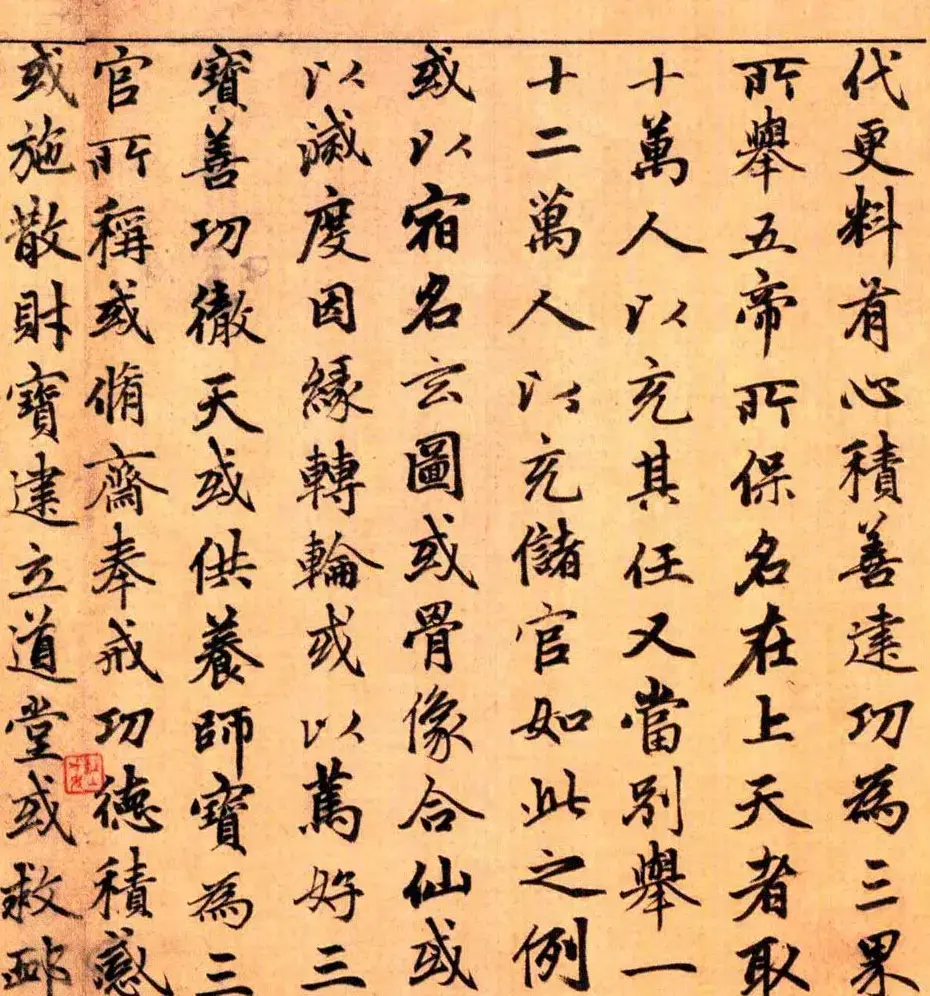 代更料有心積善達功為三果
所舉五帝所保名在上天者取
十萬人以充其任又當別舉一
十二萬人以充儲官如此之例
或以宿名玄圖或骨像合仙或
以滅度因緣轉輪或以篤好三
寶善功徹天或供養師寶為三
官所稱或脩齋奉戒功德積感
或施散財寶建立道堂或救